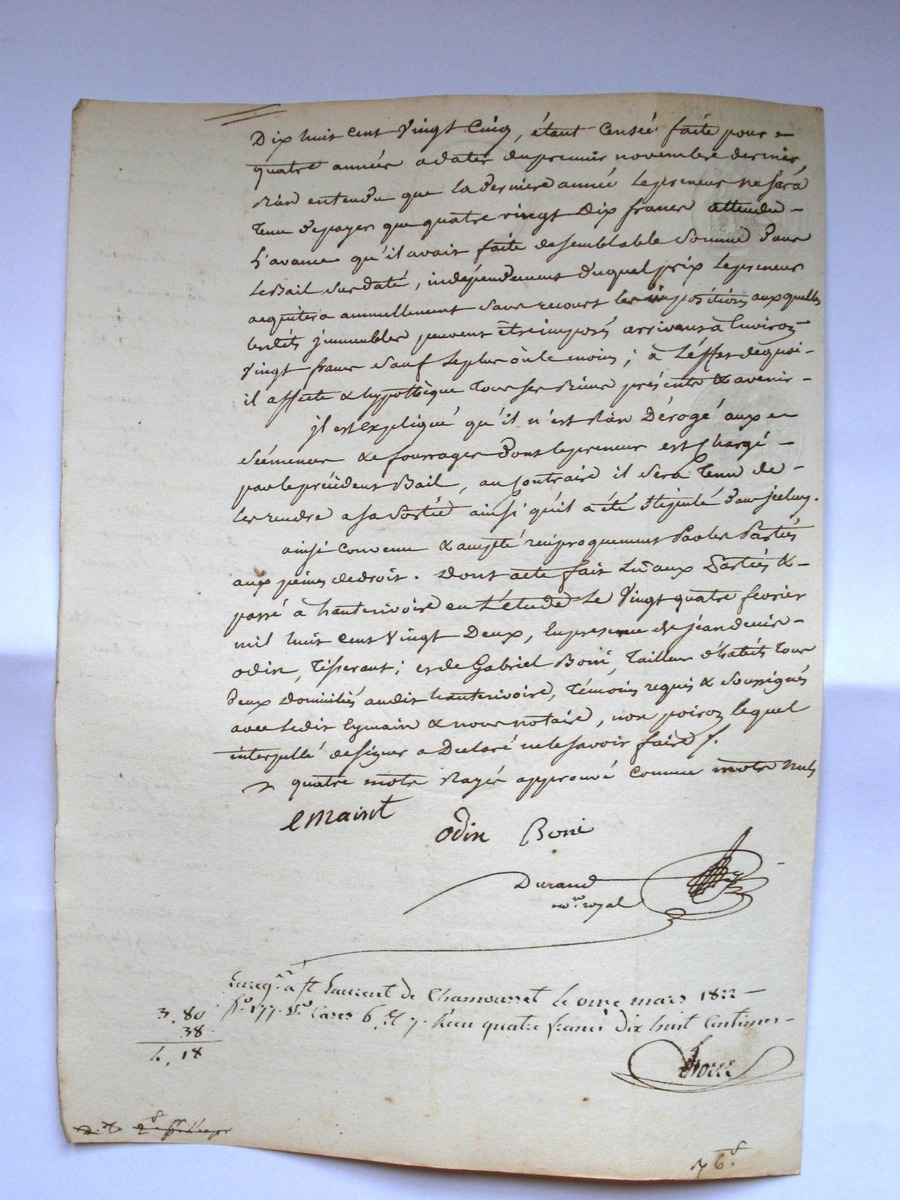 Dix huit cent Vingt Cinq, étant Censée faite pour
quatre année a dater du premier novembre dernier,
Rien entendu que la derniere année le preneur ne sera
Tenu de payer que quatre vingt Dix francs attendu
L'avance qu'il avait faite de semblable Somme dans
Le Bail Susdaté, indépendament duquel prix le preneur
acquitera annuellement Sans recours les impositions auxquelles
lesdits jmmeubles peuvent être imposés arrivants à Environ
Vingt francs Sauf le plus où le moins; à L'éffet de quoi
il affecte & hypothèque Tous ses Biens présents & avenir
jl est Expliqué qu'il n'est Rien Dérogé aux
Séémences & fourrages dont le preneur est Chargé
par le précédent Bail, au Contraire il Sera Tenu de
les rendre a sa Sortie ainsi qu'il a été Stipulé dans jcelluy.
ainsi convenu & accepté réciproquement Par les Parties
aux peines de droit. Dont acte fait Lu aux Parties &
passé à hauterivoire en L'étude Le Vingt quatre février
mil huit Cent Vingt Deux, En presence de jean denis
odin, Tisserant; et de Gabriel Boni, Tailleur d'habits Tous
deux domiciliés audit hauterivoire, Témoins requis & Soussignés
avec ledit Eymain & nous notaire, non poizou lequel
interpellé de signer a Déclaré ne le savoir faire /.
quatre mots Rayés approuvé comme mots Nuls
emaint
odin Boni
Durand
no.re royal
Enreg.é a St Laurent de Chamousset le onze mars 1822
f.o 177 v.o Cases 6 et 7. Reçu quatre francs dix huit Centimes
3, 80
38
4, 18
76